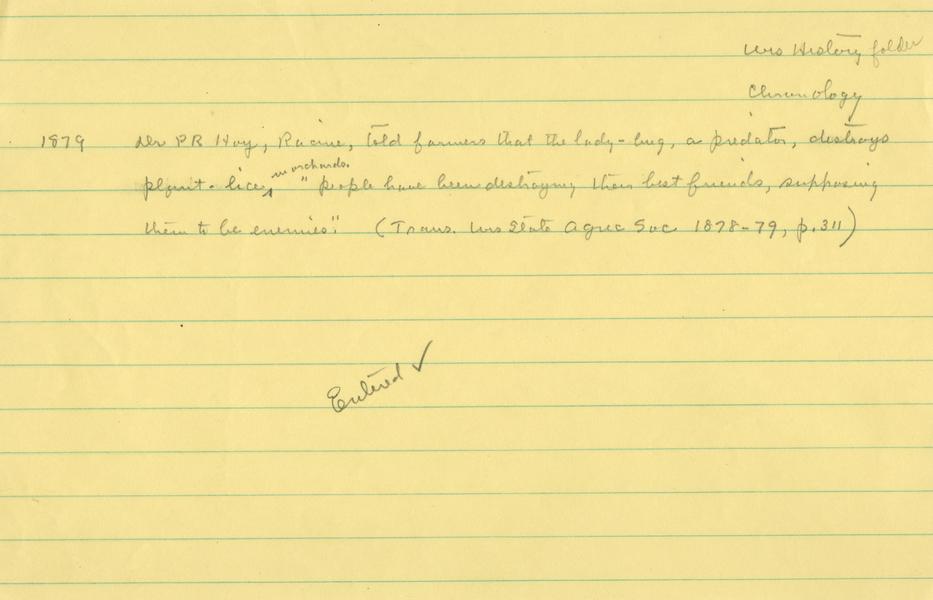 Wis History folder
Chronology
1879 Dr. P.R. Hoy, Racine, told farmers that the lady-bug, a predator, destroys
in orchards.
plant-lice, "people have been destroying their best friends, supposing
them to be enemies." (Trans. Wis State Agric Soc. 1878-79, p. 311)
Entered ✓